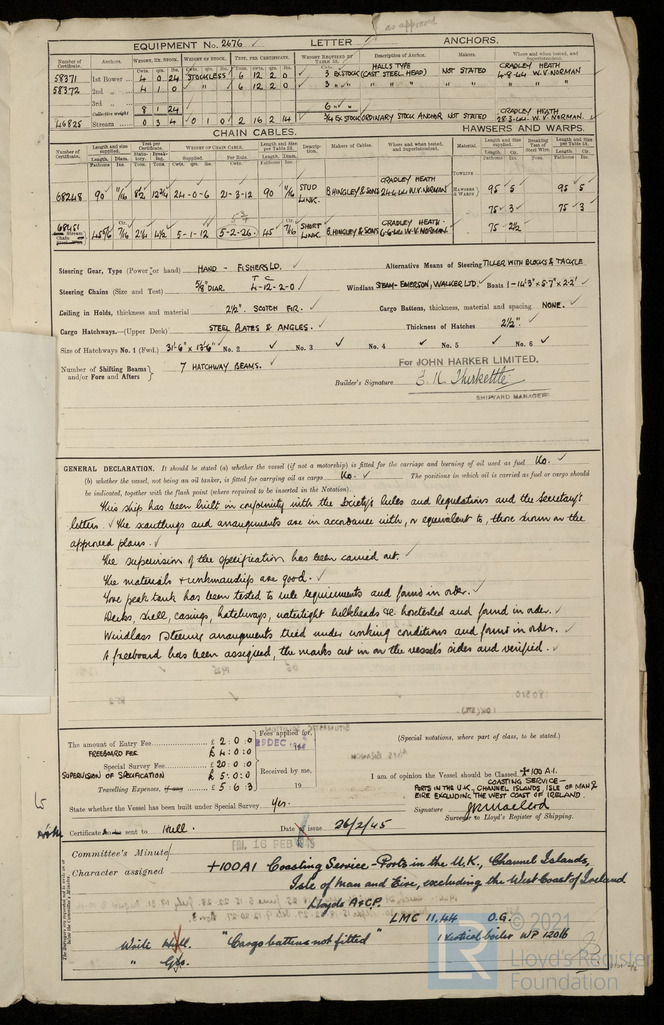 as approved
EQUIPMENT No. 2676 LETTER ANCHORS.
Number of Certificate. Anchors. WEIGHT, EX. STOCK. WEIGHT OF STOCK. TEST, PER CERTIFICATE. WEIGHT REQUIRED BY TABLE 53. Description of Anchor. Makers. Where and when tested, and Superintendent.
58371 1st Bower 4 0 24 STOCKLESS 6 12 2 0 3 EX STOCK HALLS TYPE (CAST STEEL HEAD) NOT STATED CRADLEY HEATH 4-8-44 W.V. NORMAN
58372 2nd „ 4 1 0 „ 6 12 2 0 3 „ „ „ „ „ „
3rd „
Collective weight 8 1 24 6 „ „
46825 Stream 0 3 4 0 1 0 2 16 2 14 ¾ EX STOCK ORDINARY STOCK ANCHOR NOT STATED CRADLEY HEATH 28-3-44 W.V. NORMAN.
CHAIN CABLES. HAWSERS AND WARPS.
Number of Certificate. Length and size supplied. Test per Certificate WEIGHT OF CHAIN CABLE. Length and Size per Table 53. Description. Makers of Cables. Where and when tested, and Superintendent. Material Length and Size supplied. Breaking Test of Steel Wire. Length and Size per Table 53.
Length. Diam. Breaking. Supplied. Per Rule. Length. Diam. Length. Cir. Length. Cir.
68248 90 11/16 24-0-6 21-3-12 90 11/16 STUD LINK. B. HINGLEY & SONS CRADLEY HEATH 24-6-44 W.V. NORMAN Hawsers & Warps 95 5 95 5
75 3 75 3
68451 Stream Chain 45 7/16 5-1-12 5-2-26 45 7/16 SHORT LINK. B. HINGLEY & SONS CRADLEY HEATH - 6-6-44 W.V. NORMAN. 75 2½
Steering Gear, Type (Power or hand) HAND - FISHERS LD. Alternative Means of Steering TILLER WITH BLOCKS & TACKLE
Steering Chains (Size and Test) 5/8" DIAR T C 4-12-2-0 Windlass STEAM-EMERSON, WALKER LTD. Boats 1-14'3"x5'7"x2'2'
Ceiling in Holds, thickness and material 2½". SCOTCH FIR. Cargo Battens, thickness, material and spacing NONE.
Cargo Hatchways.—(Upper Deck) STEEL PLATES & ANGLES. Thickness of Hatches 2½".
Size of Hatchways No. 1 (Fwd.) 31'-6" x 13'-6" No. 2 No. 3 No. 4 No. 5 No. 6
Number of Shifting Beams and/or Fore and Afters 7 HATCHWAY BEAMS.
For JOHN HARKER LIMITED.
Builder's Signature
SHIPYARD MANAGER
GENERAL DECLARATION. It should be stated (a) whether the vessel (if not a motorship) is fitted for the carriage and burning of oil used as fuel No.
(b) whether the vessel, not being an oil tanker, is fitted for carrying oil as cargo No. The positions in which oil is carried as fuel or cargo should
be indicated, together with the flash point (where required to be inserted in the Notation).
This ship has been built in conformity with the Society's Rules and Regulations and the Secretary's
letters. The scantlings and arrangements are in accordance with, or equivalent to, those shown on the
approved plans.
The supervision of the specification has been carried out.
The materials & workmanship are good.
Fore peak tank has been tested to rule requirements and found in order.
Decks, shell, casings, hatchways, watertight bulkheads etc. hose tested and found in order.
Windlass & steering arrangements tried under working conditions and found in order.
A freeboard has been assigned, the marks cut in on the vessel's sides and verified.
The amount of Entry Fee £ 2:0:0 Fees applied for,
FREEBOARD FEE £ 4:0:0 29 DEC 1944
Special Survey Fee £ 20:0:0 Received by me,
SUPERVISION OF SPECIFICATION £ 5:0:0
Travelling Expenses, if any £ 5:6:3 19
(Special notations, where part of class, to be stated.)
I am of opinion the Vessel should be Classed +100 A.1.
COASTING SERVICE-
PORTS IN THE U.K., CHANNEL ISLANDS, ISLE OF MAN &
EIRE EXCLUDING THE WEST COAST OF IRELAND.
State whether the Vessel has been built under Special Survey Yes.
Signature
Surveyor to Lloyd's Register of Shipping.
Certificate sent to Hull. Date of issue 26/2/45
Committee's Minute FRI. 16 FEB 1945
Character assigned +100A1 Coasting Service-Ports in the U.K., Channel Islands,
Isle of Man and Eire, excluding the West Coast of Ireland
Lloyds A&CP.
LMC 11.44 O.G.
Write Hull "Cargo battens not fitted" 1 Vertical boiler WP 120lb
„ Gls.
© 2021
LR Lloyd's Register
Foundation